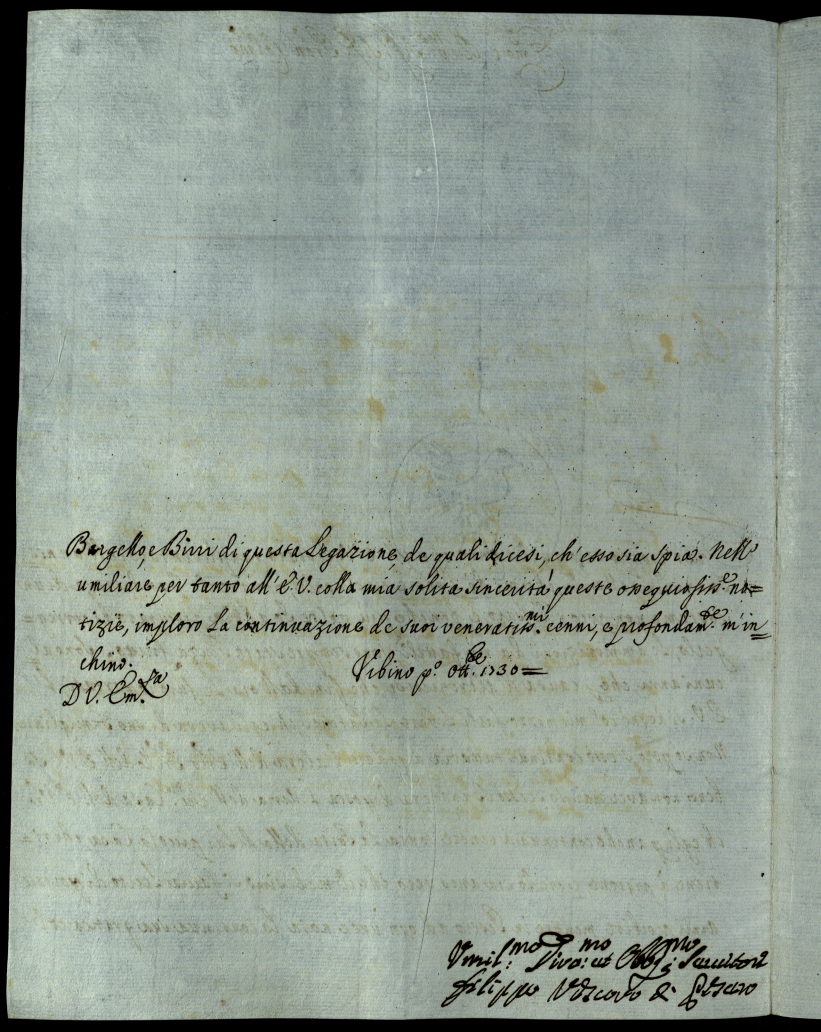 Bargello, e Birri di questa Legazione, de quali dicesi, ch'esso sia spia. Nell'
umiliare per tanto all'E.V. colla mia solita sincerità queste ossequiosiss.e no=
tizie, imploro la continuazione de suoi veneratiss.mi cenni, e profondam.te m'in=
chino.
Urbino p.o Ott.bre 1730=
D V. Em.za
Umil.mo Divo.mo et Obbg.mo Servitore
Filippo Vescovo di Pesaro